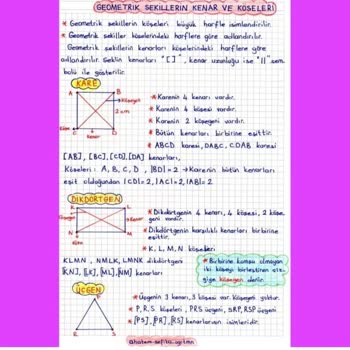 GEOMETRİK SEKİLLERİN KENAR VE KÖSELERİ
* Geometrik sekillerin köseleri büyük harfle isimlendirilir.
* Geometrik sekiller köselerindeki harflere göre adlandırılır.
Geometrik sekillerin kenarları köselerindeki harflere göre
adlandırılır. Seklin kenarları "[ ]", kenar uzunluğu ise "||" sem
bolü ile gösterilir.
KARE
A B
Köşegen
2 cm
Köse
C D
kenar
* Karenin 4 kenarı vardır.
* Karenin 4 kösesi vardır.
* Karenin 2 kösegeni vardır.
* Bütün kenarları birbirine esittir.
* ABCD karesi, DABC, CDAB karesi
[AB], [BC], [CD], [DA] kenarları,
Köseleri: A, B, C, D, |BD|=2 → Karenin bütün kenarları
esit olduğundan |CD|=2, |AC|=2, |AB|=2
DİKDÖRTGEN
K L
Kösegen
Kenar
N M
Köse
* Dikdörtgenin 4 kenarı, 4 kösesi, 2 köse
geni vardır.
* Dikdörtgenin karsılıklı kenarları birbirine
esittir.
* K, L, M, N köseleri
KLMN, NMLK, LMNK dikdörtgeni
[KN], [LK], [ML], [NM] kenarları
* Birbirine komsu olmayan
iki köseyi birlestiren çiz
giye kösegen denir.
ÜÇGEN
P
R S
* Üçgenin 3 kenarı, 3 kösesi var. Kösegeni yoktur.
* P, R, S köseleri, PRS üçgeni, SRP, RSP üçgeni
* [PS], [PR], [RS] kenarlarının isimleridir.